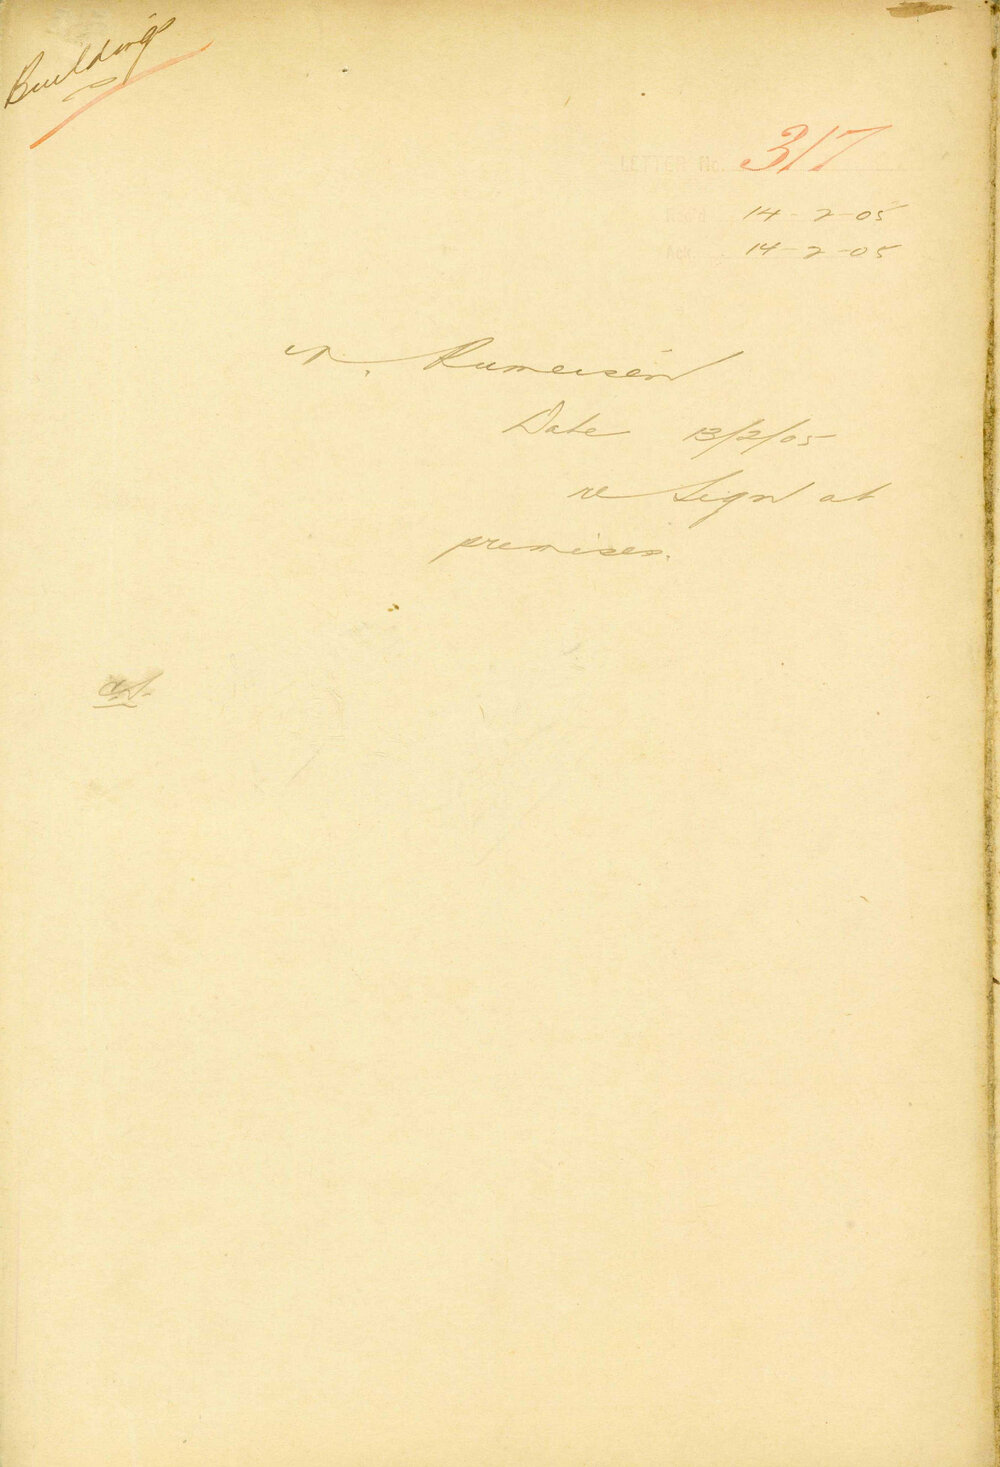 Building
LETTER No. 317
Rec'd 14-2-05
Ack. 14-2-05
Rumeisen
Date 13/2/05
re Sign at
premises.